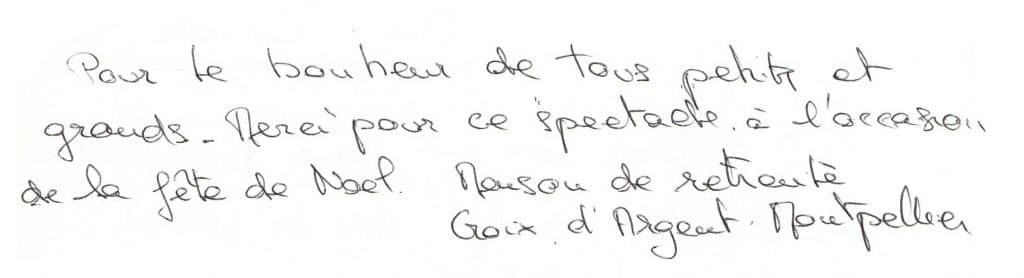 Pour le bonheur de tous petits et
grands - Merci pour ce spectacle. à l'occasion
de la fête de Noel. Maison de retraite
Croix d'Argent. Montpellier